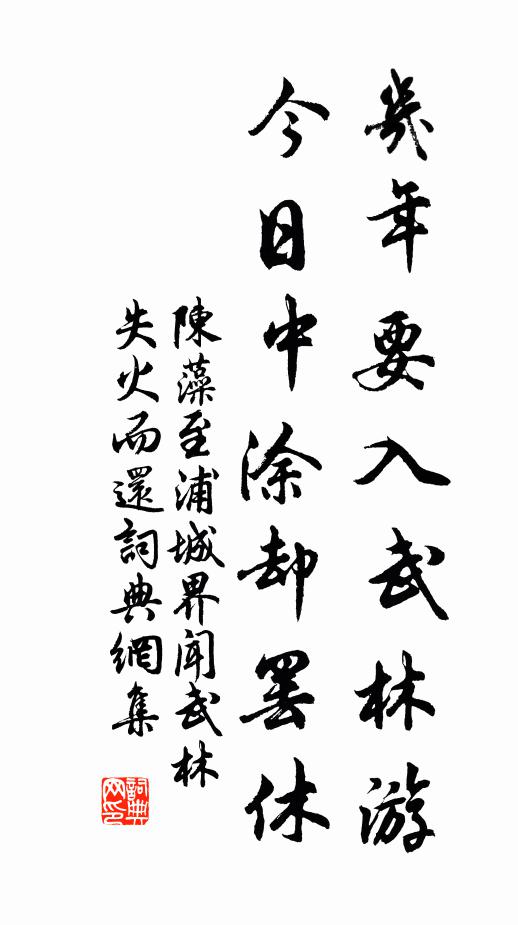 幾年要入武林游
今日中涂却罷休
陳藻至浦城界聞武林
失火而還詞典網集
詞典网印